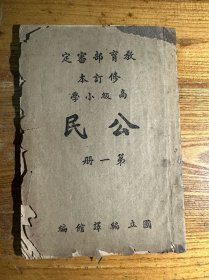 教育部審定
修訂本
高級小學
公民
第一册
國立編譯館編